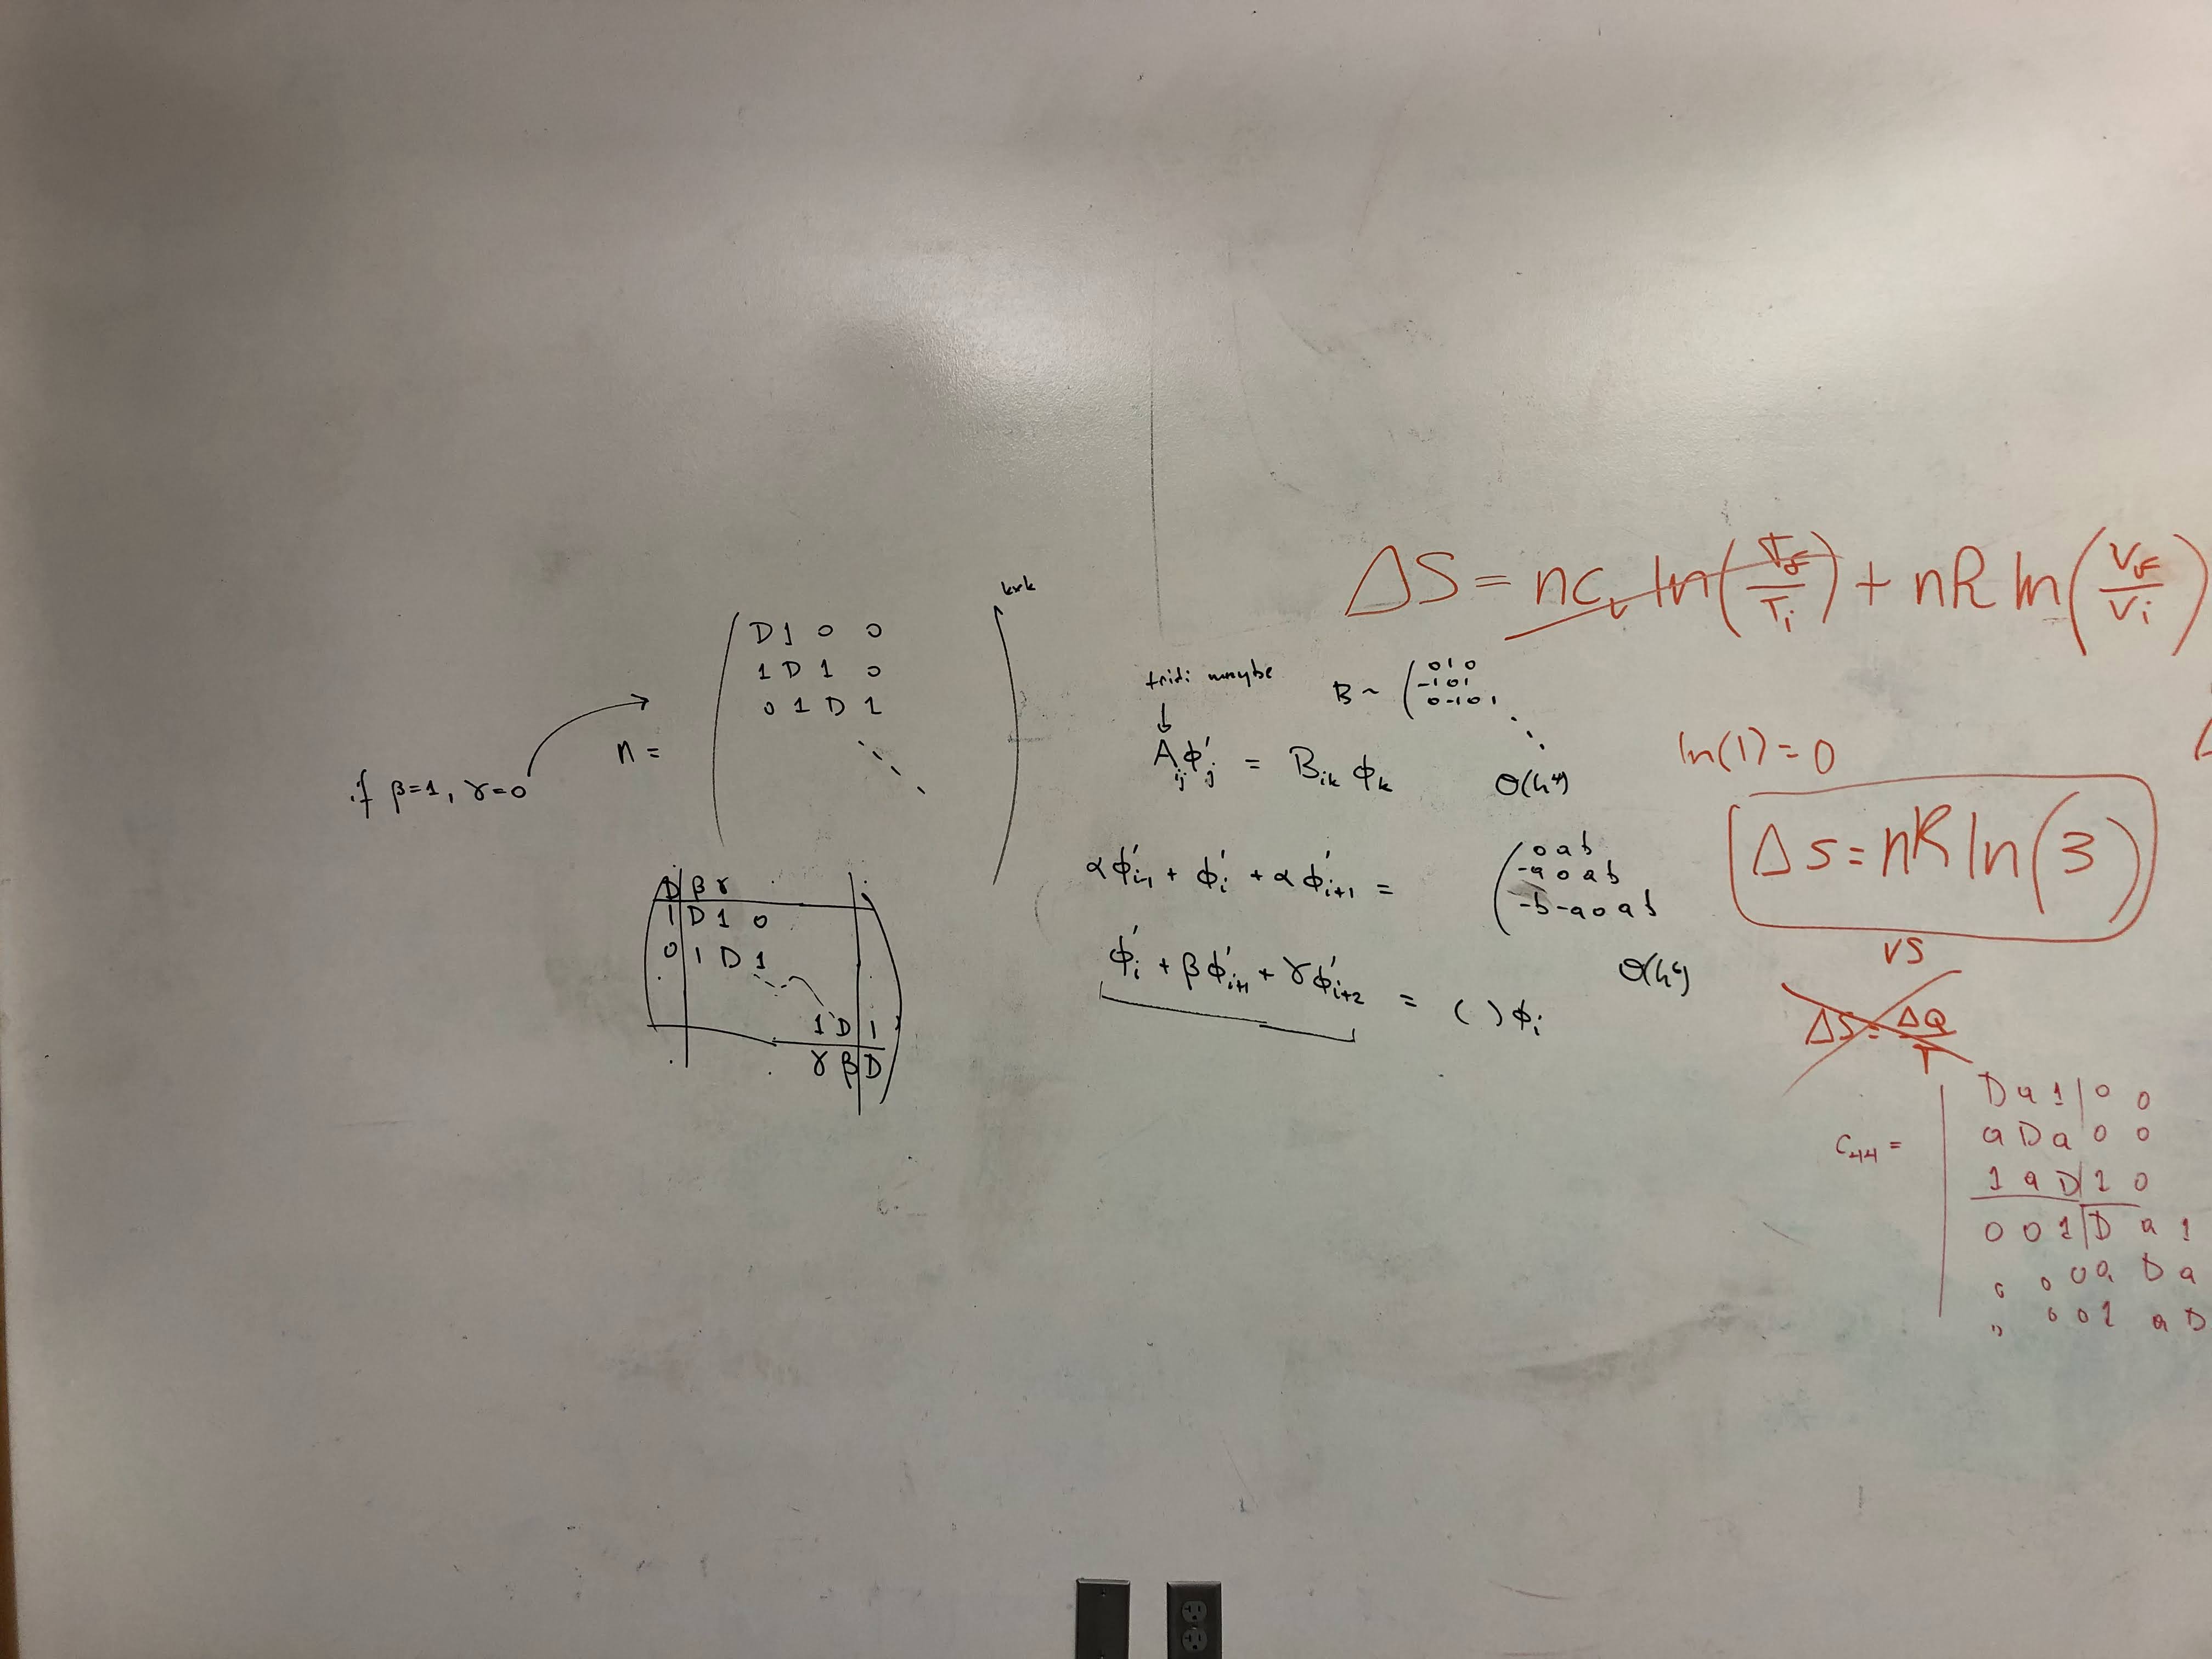 k×k
D 1 0 0
1 D 1 0
0 1 D 1
n =
if β=1, γ=0
D β γ
1 D 1 0
0 1 D 1
1 D 1
γ β D
tridi maybe
↓
A_ij ϕ'_j = B_ik ϕ_k
B ~ ( 0 1 0
-1 0 1
0 -1 0 1
O(h⁴)
αϕ'_i-1 + ϕ'_i + αϕ'_i+1 =
( 0 a b
-a 0 a b
-b -a 0 a b
ϕ'_i + βϕ'_i+1 + γϕ'_i+2 = ( ) ϕ_i
O(h⁶)
ΔS = nc_v ln(T_f/T_i) + nR ln(V_f/V_i)
ln(1) = 0
ΔS = nR ln(3)
VS
ΔS = ΔQ/T
C_44 =
D a 1 0 0
a D a 0 0
1 a D 1 0
0 0 1 D a 1
0 0 0 a D a
0 0 1 a D